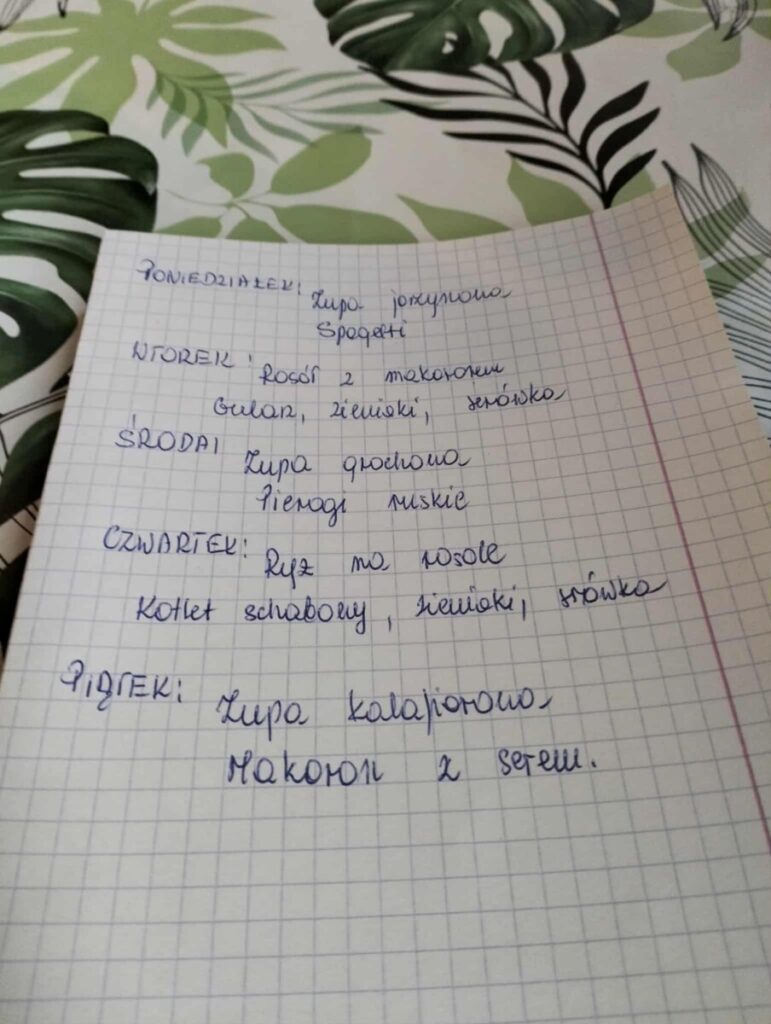 PONIEDZIAŁEK: Zupa jarzynowa
Spagetti
WTOREK: Rosół z makaronem
Gulasz, ziemiaki, surówka
ŚRODA: Zupa grochowa
Pierogi ruskie
CZWARTEK: Ryż na rosole
Kotlet schabowy, ziemiaki, surówka
PIĄTEK: Zupa kalafiorowa
Makaron z serem.